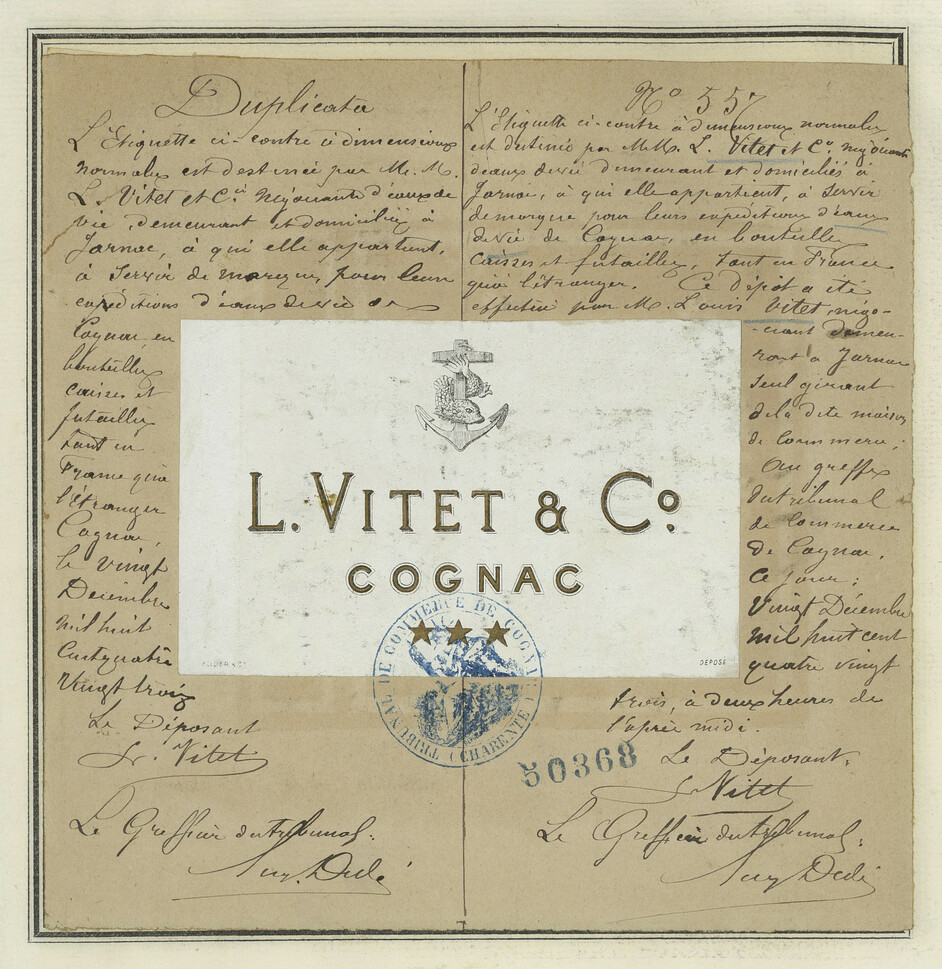 Duplicata
L'Etiquette ci-contre à dimensions
normales est destinée par M. M.
L. Vitet et Cie négociants d'eaux de
vie, demeurant et domiciliés à
Jarnac, à qui elle appartient,
à servir de marque, pour leurs
expéditions d'eaux de vie de
Cognac, en
bouteilles
caisses et
futailles
tant en
France qu'à
l'étranger
Cognac,
le vingt
Décembre
mil huit
cent quatre
vingt trois
Le Déposant
L. Vitet
Le Greffier du tribunal:
No 557
L'Etiquette ci-contre à dimensions normales
est destinée par M.M. L. Vitet et Co, négociants
d'eaux de vie demeurant et domiciliés à
Jarnac, à qui elle appartient, à servir
de marque pour leurs expéditions d'eaux
de vie de Cognac, en bouteilles
caisses et futailles, tant en France
qu'à l'étranger. Ce dépôt a été
effectué par M. Louis Vitet, négo-
-ciant demeu-
rant à Jarnac
seul gérant
de la dite maison
de Commerce.
Au greffe
du tribunal
de Commerce
de Cognac,
ce jour:
Vingt Décembre
mil huit cent
quatre vingt
trois, à deux heures de
l'après midi.
Le Déposant,
L. Vitet
Le Greffier du tribunal,
L. VITET & Co.
COGNAC
DÉPOSÉ
TRIBUNAL DE COMMERCE DE COGNAC
(CHARENTE)
50368